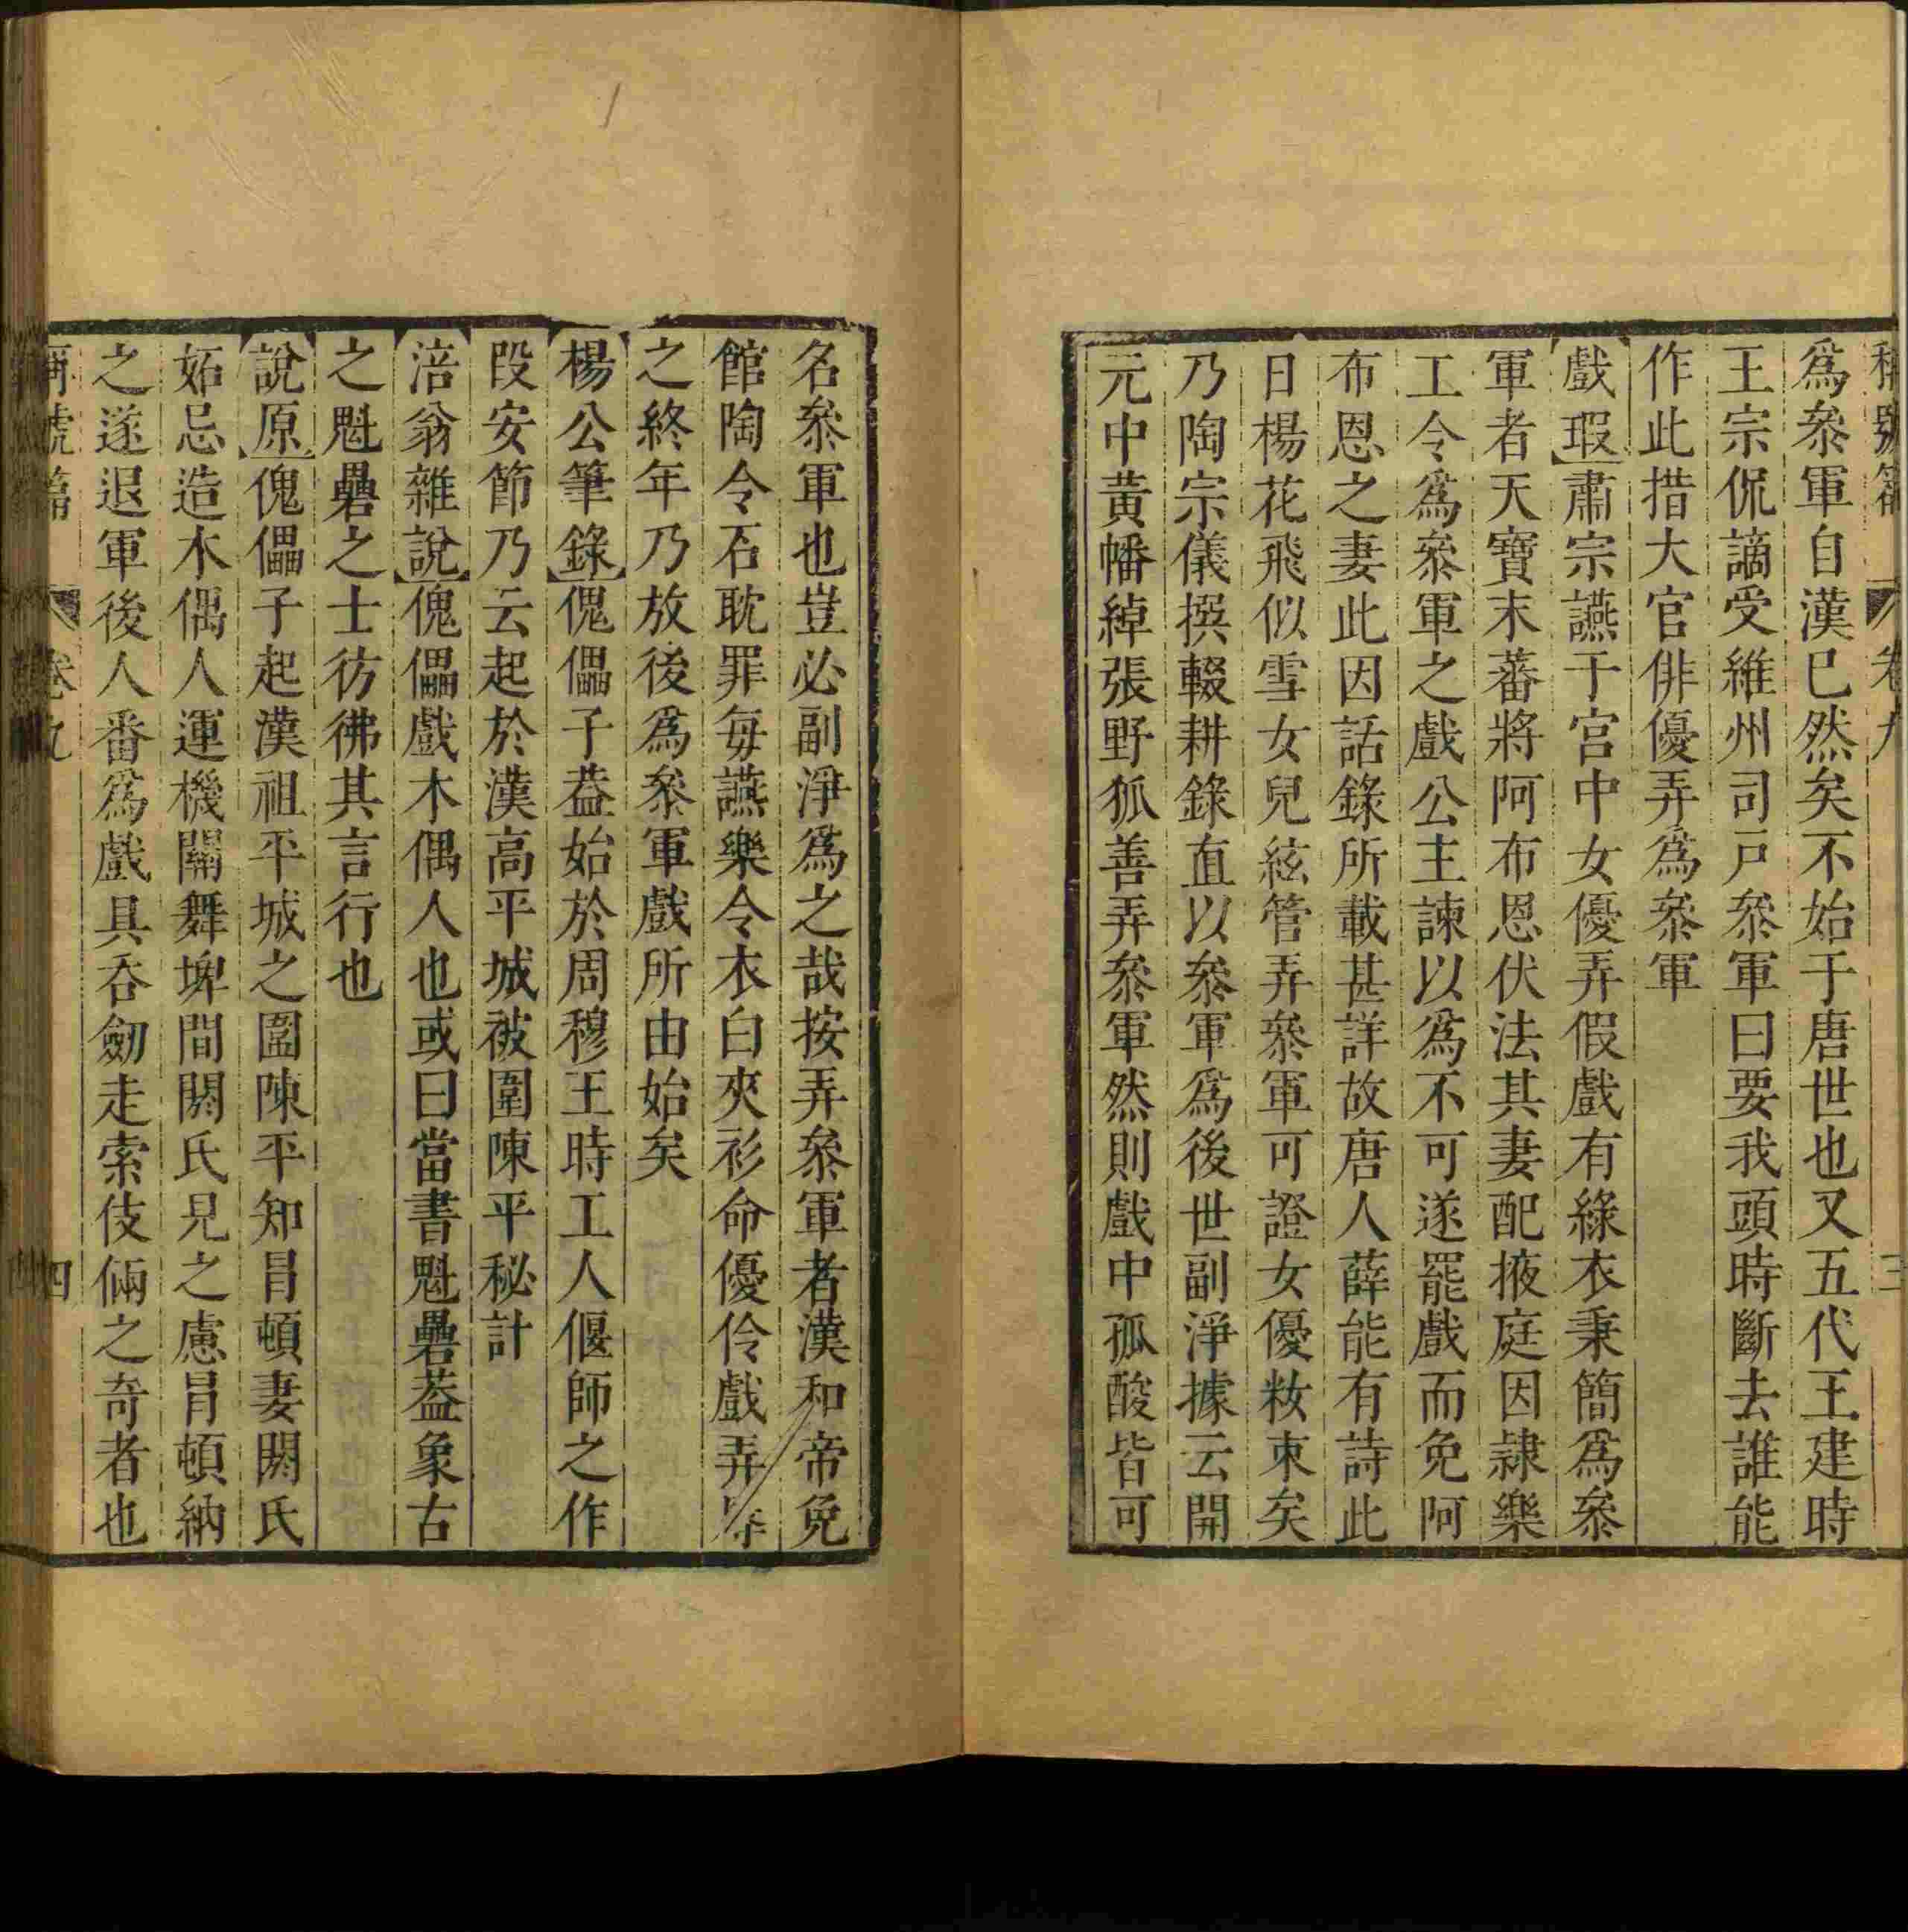 稱號篇 卷九 三
爲叅軍自漢已然矣不始于唐世也又五代王建時
王宗侃謫受維州司戸叅軍曰要我頭時斷去誰能
作此措大官俳優弄爲叅軍
戲瑕肅宗讌于宮中女優弄假戲有綠衣秉簡爲叅
軍者天寶末蕃將阿布恩伏法其妻配掖庭因隷樂
工令爲叅軍之戲公主諫以爲不可遂罷戲而免阿
布恩之妻此因話錄所載甚詳故唐人薛能有詩此
日楊花飛似雪女兒絃管弄叅軍可證女優粧束矣
乃陶宗儀撰輟耕錄直以叅軍爲後世副淨據云開
元中黃幡綽張野狐善弄叅軍然則戲中孤酸皆可
名叅軍也豈必副淨爲之哉按弄叅軍者漢和帝免
館陶令石耽罪每讌樂令衣白夾衫命優伶戲弄辱
之終年乃放後爲叅軍戲所由始矣
楊公筆錄傀儡子葢始於周穆王時工人偃師之作
段安節乃云起於漢高平城被圍陳平秘計
涪翁雜說傀儡戲木偶人也或曰當書魁礨葢象古
之魁礨之士彷彿其言行也
說原傀儡子起漢祖平城之圍陳平知冒頓妻閼氏
妬忌造木偶人運機關舞埤間閼氏見之慮冒頓納
之遂退軍後人番爲戲具吞劒走索伎倆之奇者也
稱號篇 卷九 四